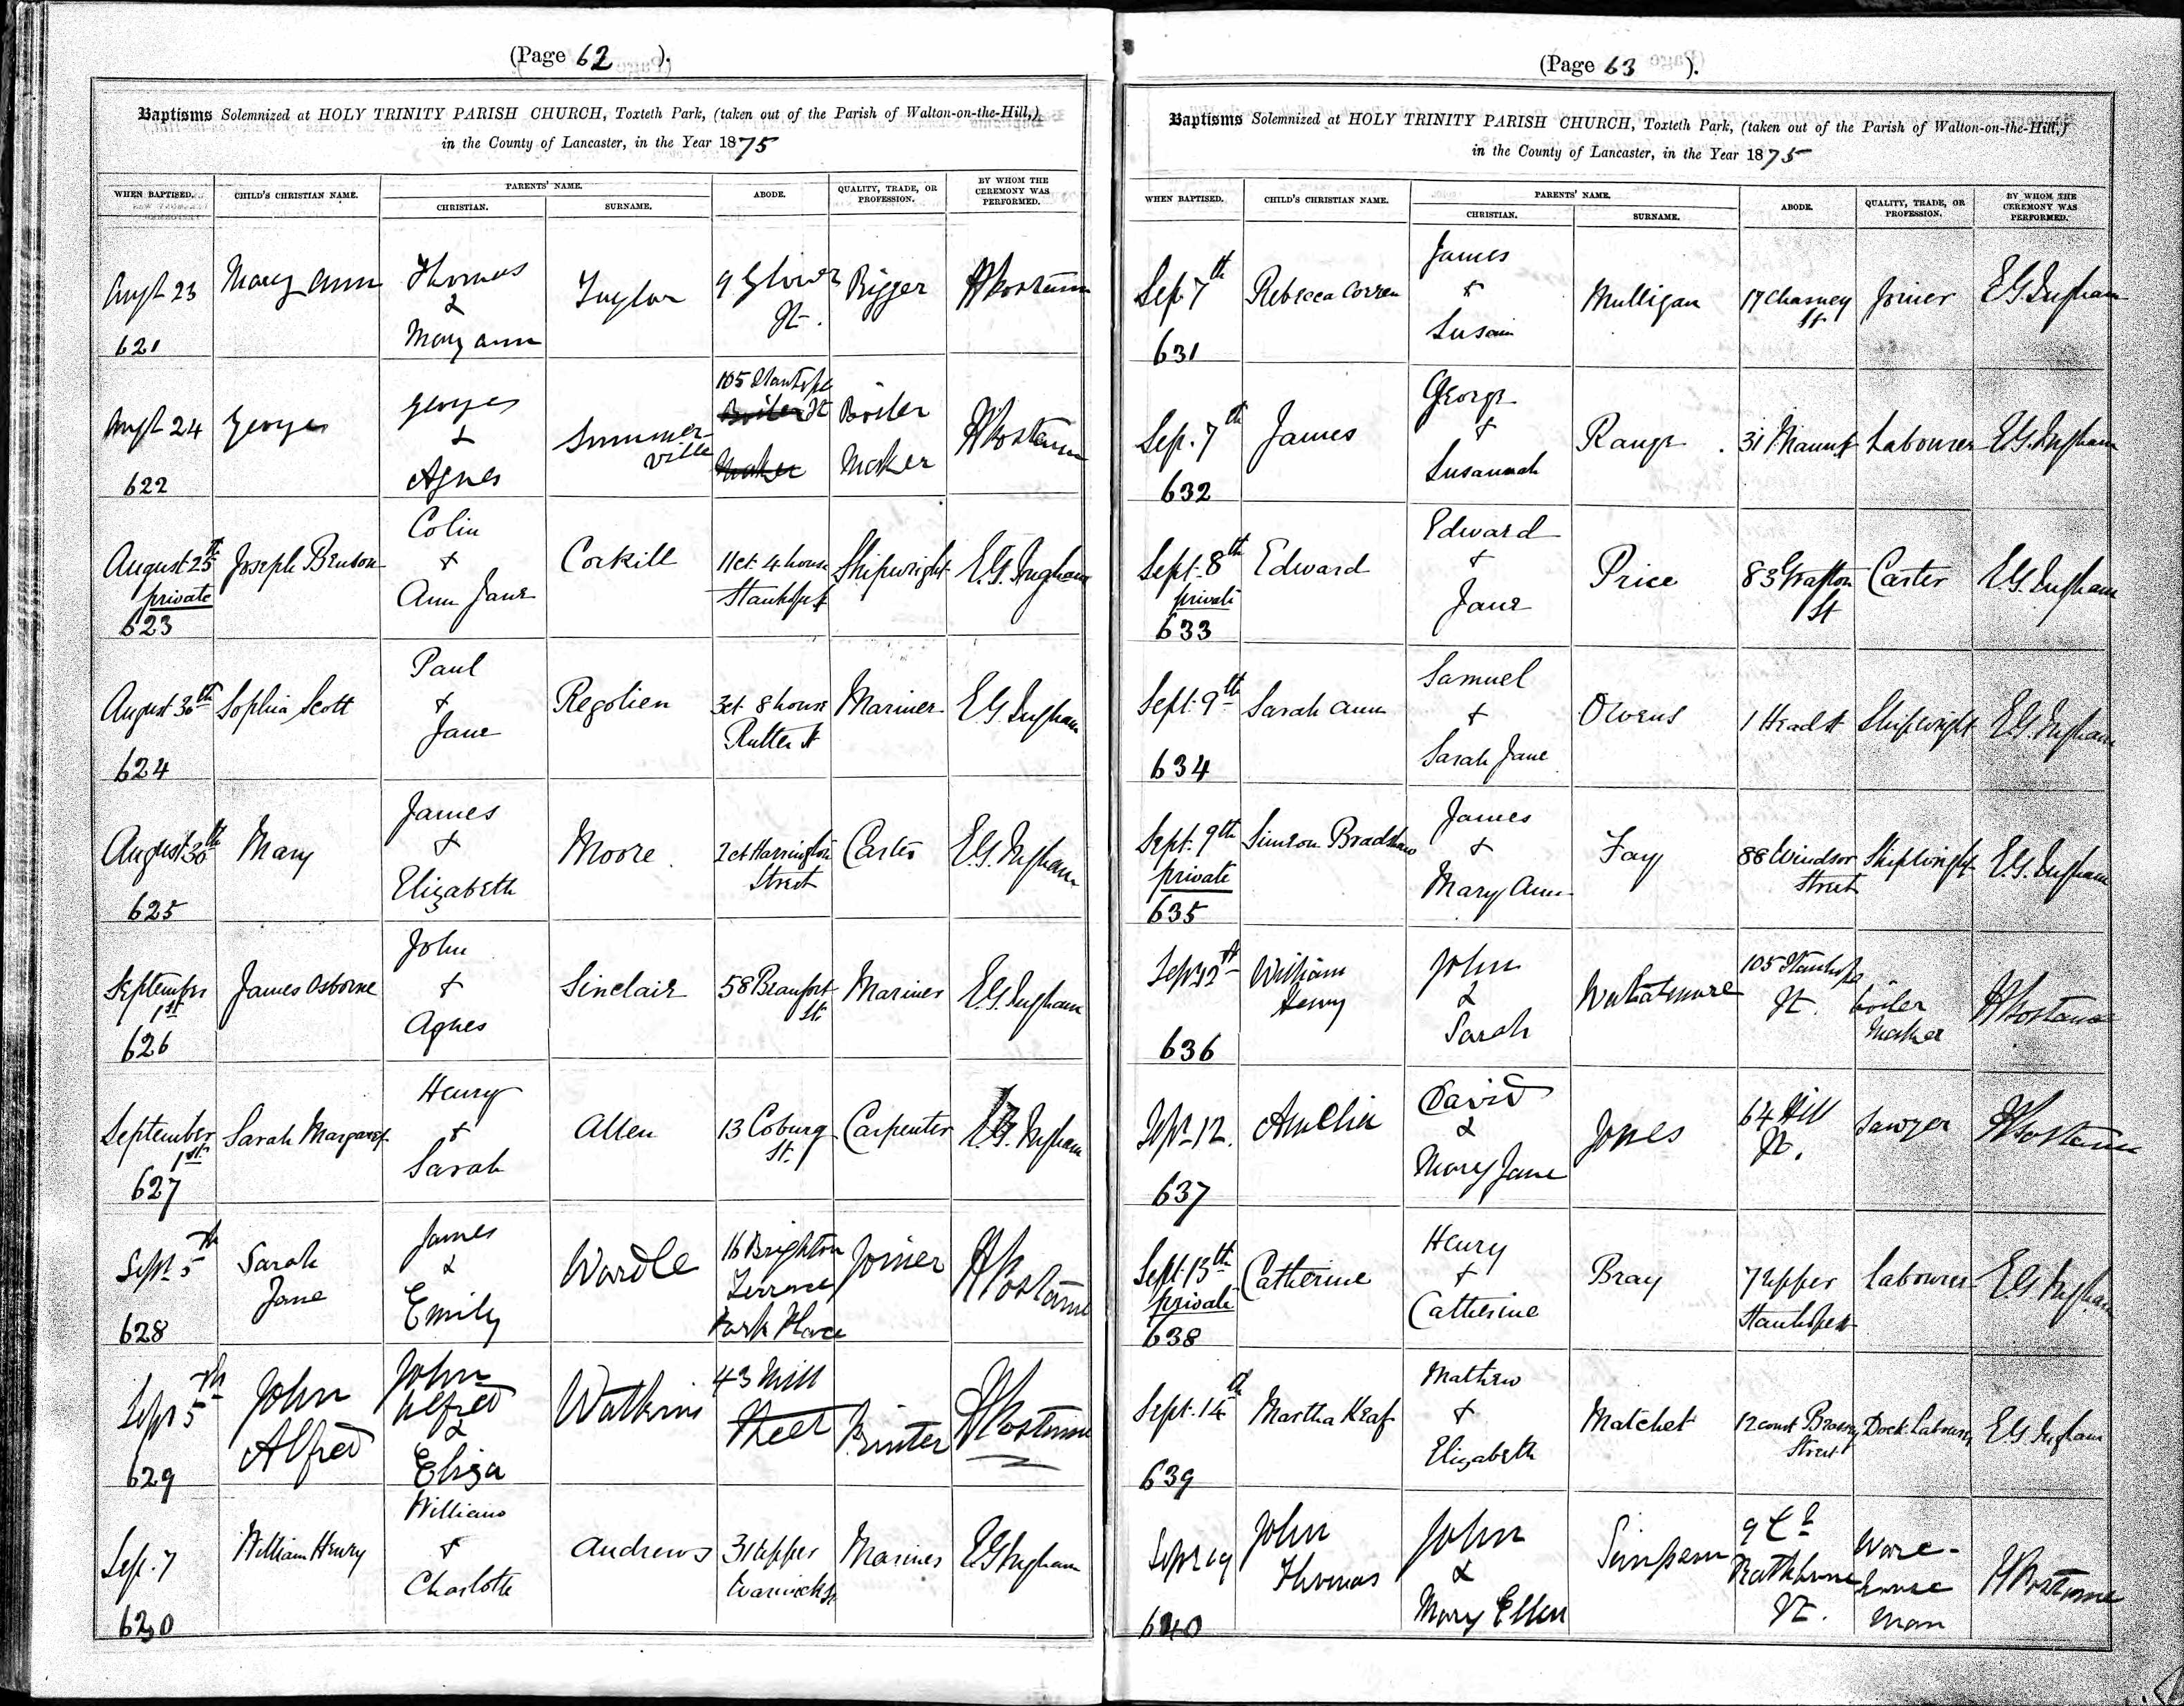 (Page 62 ).
Baptisms Solemnized at HOLY TRINITY PARISH CHURCH, Toxteth Park, (taken out of the Parish of Walton-on-the-Hill,)
in the County of Lancaster, in the Year 1875
WHEN BAPTISED. CHILD'S CHRISTIAN NAME. PARENTS' NAME. CHRISTIAN. SURNAME. ABODE. QUALITY, TRADE, OR PROFESSION. BY WHOM THE CEREMONY WAS PERFORMED.
Augt 23 Mary Ann Thomas & Mary Ann Taylor 9 Glover St. Rigger
621
Augt 24 George George & Agnes Summerville 105 Stanhope St Boiler Maker
622
August 25th private Joseph Benson Colin & Ann Jane Corkill 1 ct. 4 house Stanhope St Shipwright E.G. Ingham
623
August 30th Sophia Scott Paul & Jane Regolien 3 ct 8 house Rutter St Mariner E.G. Ingham
624
August 30th Mary James & Elizabeth Moore 2 ct Harrington Street Carter E.G. Ingham
625
September 1st James Osborne John & Agnes Sinclair 58 Beaufort St. Mariner E.G. Ingham
626
September 1st Sarah Margaret Henry & Sarah Allen 13 Coburg St. Carpenter E.G. Ingham
627
Sept 5th Sarah Jane James & Emily Wardle 16 Brighton Terrace Park Place Joiner
628
Sept 5th John Alfred John Alfred & Eliza Watkins 43 Mill Street
629
Sep. 7 William Henry William & Charlotte Andrews 31 Upper Warwick St Mariner E.G. Ingham
630
(Page 63 ).
Baptisms Solemnized at HOLY TRINITY PARISH CHURCH, Toxteth Park, (taken out of the Parish of Walton-on-the-Hill,)
in the County of Lancaster, in the Year 1875
WHEN BAPTISED. CHILD'S CHRISTIAN NAME. PARENTS' NAME. CHRISTIAN. SURNAME. ABODE. QUALITY, TRADE, OR PROFESSION. BY WHOM THE CEREMONY WAS PERFORMED.
Sep. 7th Rebecca Corren James & Susan Mulligan 17 Charney St. Joiner E.G. Ingham
631
Sep. 7th James George & Susannah Range 31 Labourer E.G. Ingham
632
Sept. 8th private Edward Edward & Jane Price 83 Grafton St Carter E.G. Ingham
633
Sept. 9th Sarah Ann Samuel & Sarah Jane Owens 1 Head St Shipwright E.G. Ingham
634
Sept. 9th private Simeon Bradshaw James & Mary Ann Fay 88 Windsor Street Shipwright E.G. Ingham
635
Sept 12th William Henry John & Sarah 105 Stanhope St. boiler Maker
636
Sept 12. Amelia David & Mary Jane Jones 64 Hill St. Sawyer
637
Sept. 13th private Catherine Henry & Catherine Bray 7 Upper Stanhope St Labourer E.G. Ingham
638
Sept. 14th Martha Keaf Mathew & Elizabeth Matchet 12 court Brassey Street Dock Labourer E.G. Ingham
639
Sept 19 John Thomas John & Mary Ellen Simpson 9 Ct Rathbone St. Ware-house man
640